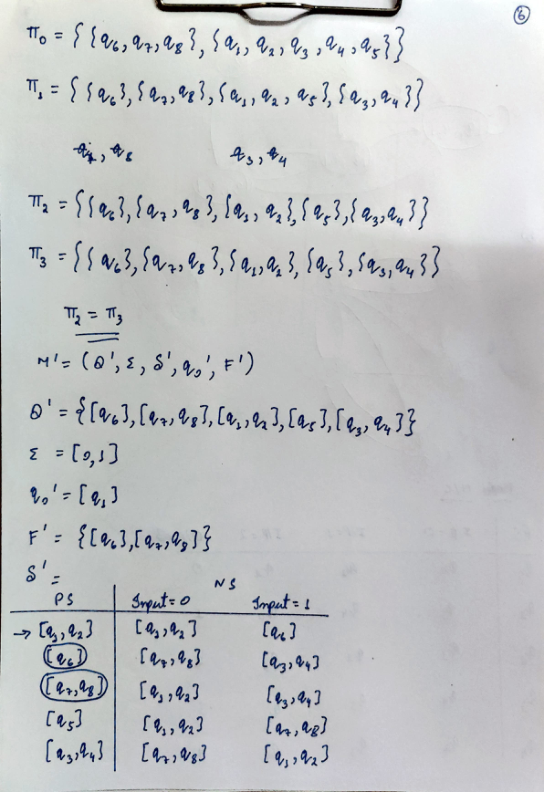 ⑥
Π₀ = {{q₆, q₇, q₈}, {q₁, q₂, q₃, q₄, q₅}}
Π₁ = {{q₆}, {q₇, q₈}, {q₁, q₂, q₅}, {q₃, q₄}}
q₇, q₈ q₃, q₄
Π₂ = {{q₆}, {q₇, q₈}, {q₁, q₂}, {q₅}, {q₃, q₄}}
Π₃ = {{q₆}, {q₇, q₈}, {q₁, q₂}, {q₅}, {q₃, q₄}}
Π₂ = Π₃
M' = (Q', Σ, δ', q₀', F')
Q' = {[q₆], [q₇, q₈], [q₁, q₂], [q₅], [q₃, q₄]}
Σ = [0,1]
q₀' = [q₁]
F' = {[q₆], [q₇, q₈]}
δ' =
NS
PS Input=0 Input=1
→ [q₁, q₂] [q₁, q₂] [q₆]
[q₆] [q₇, q₈] [q₃, q₄]
[q₇, q₈] [q₁, q₂] [q₃, q₄]
[q₅] [q₁, q₂] [q₇, q₈]
[q₃, q₄] [q₇, q₈] [q₁, q₂]